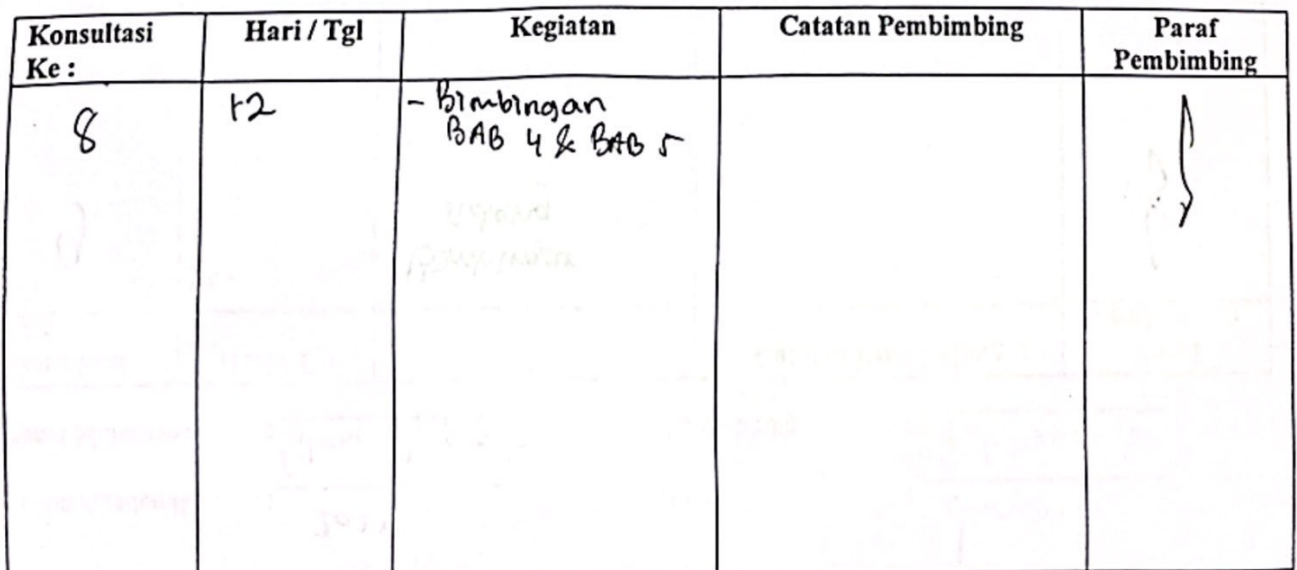 Konsultasi Ke : Hari / Tgl Kegiatan Catatan Pembimbing Paraf Pembimbing
8 12 - Bimbingan
BAB 4 & BAB 5